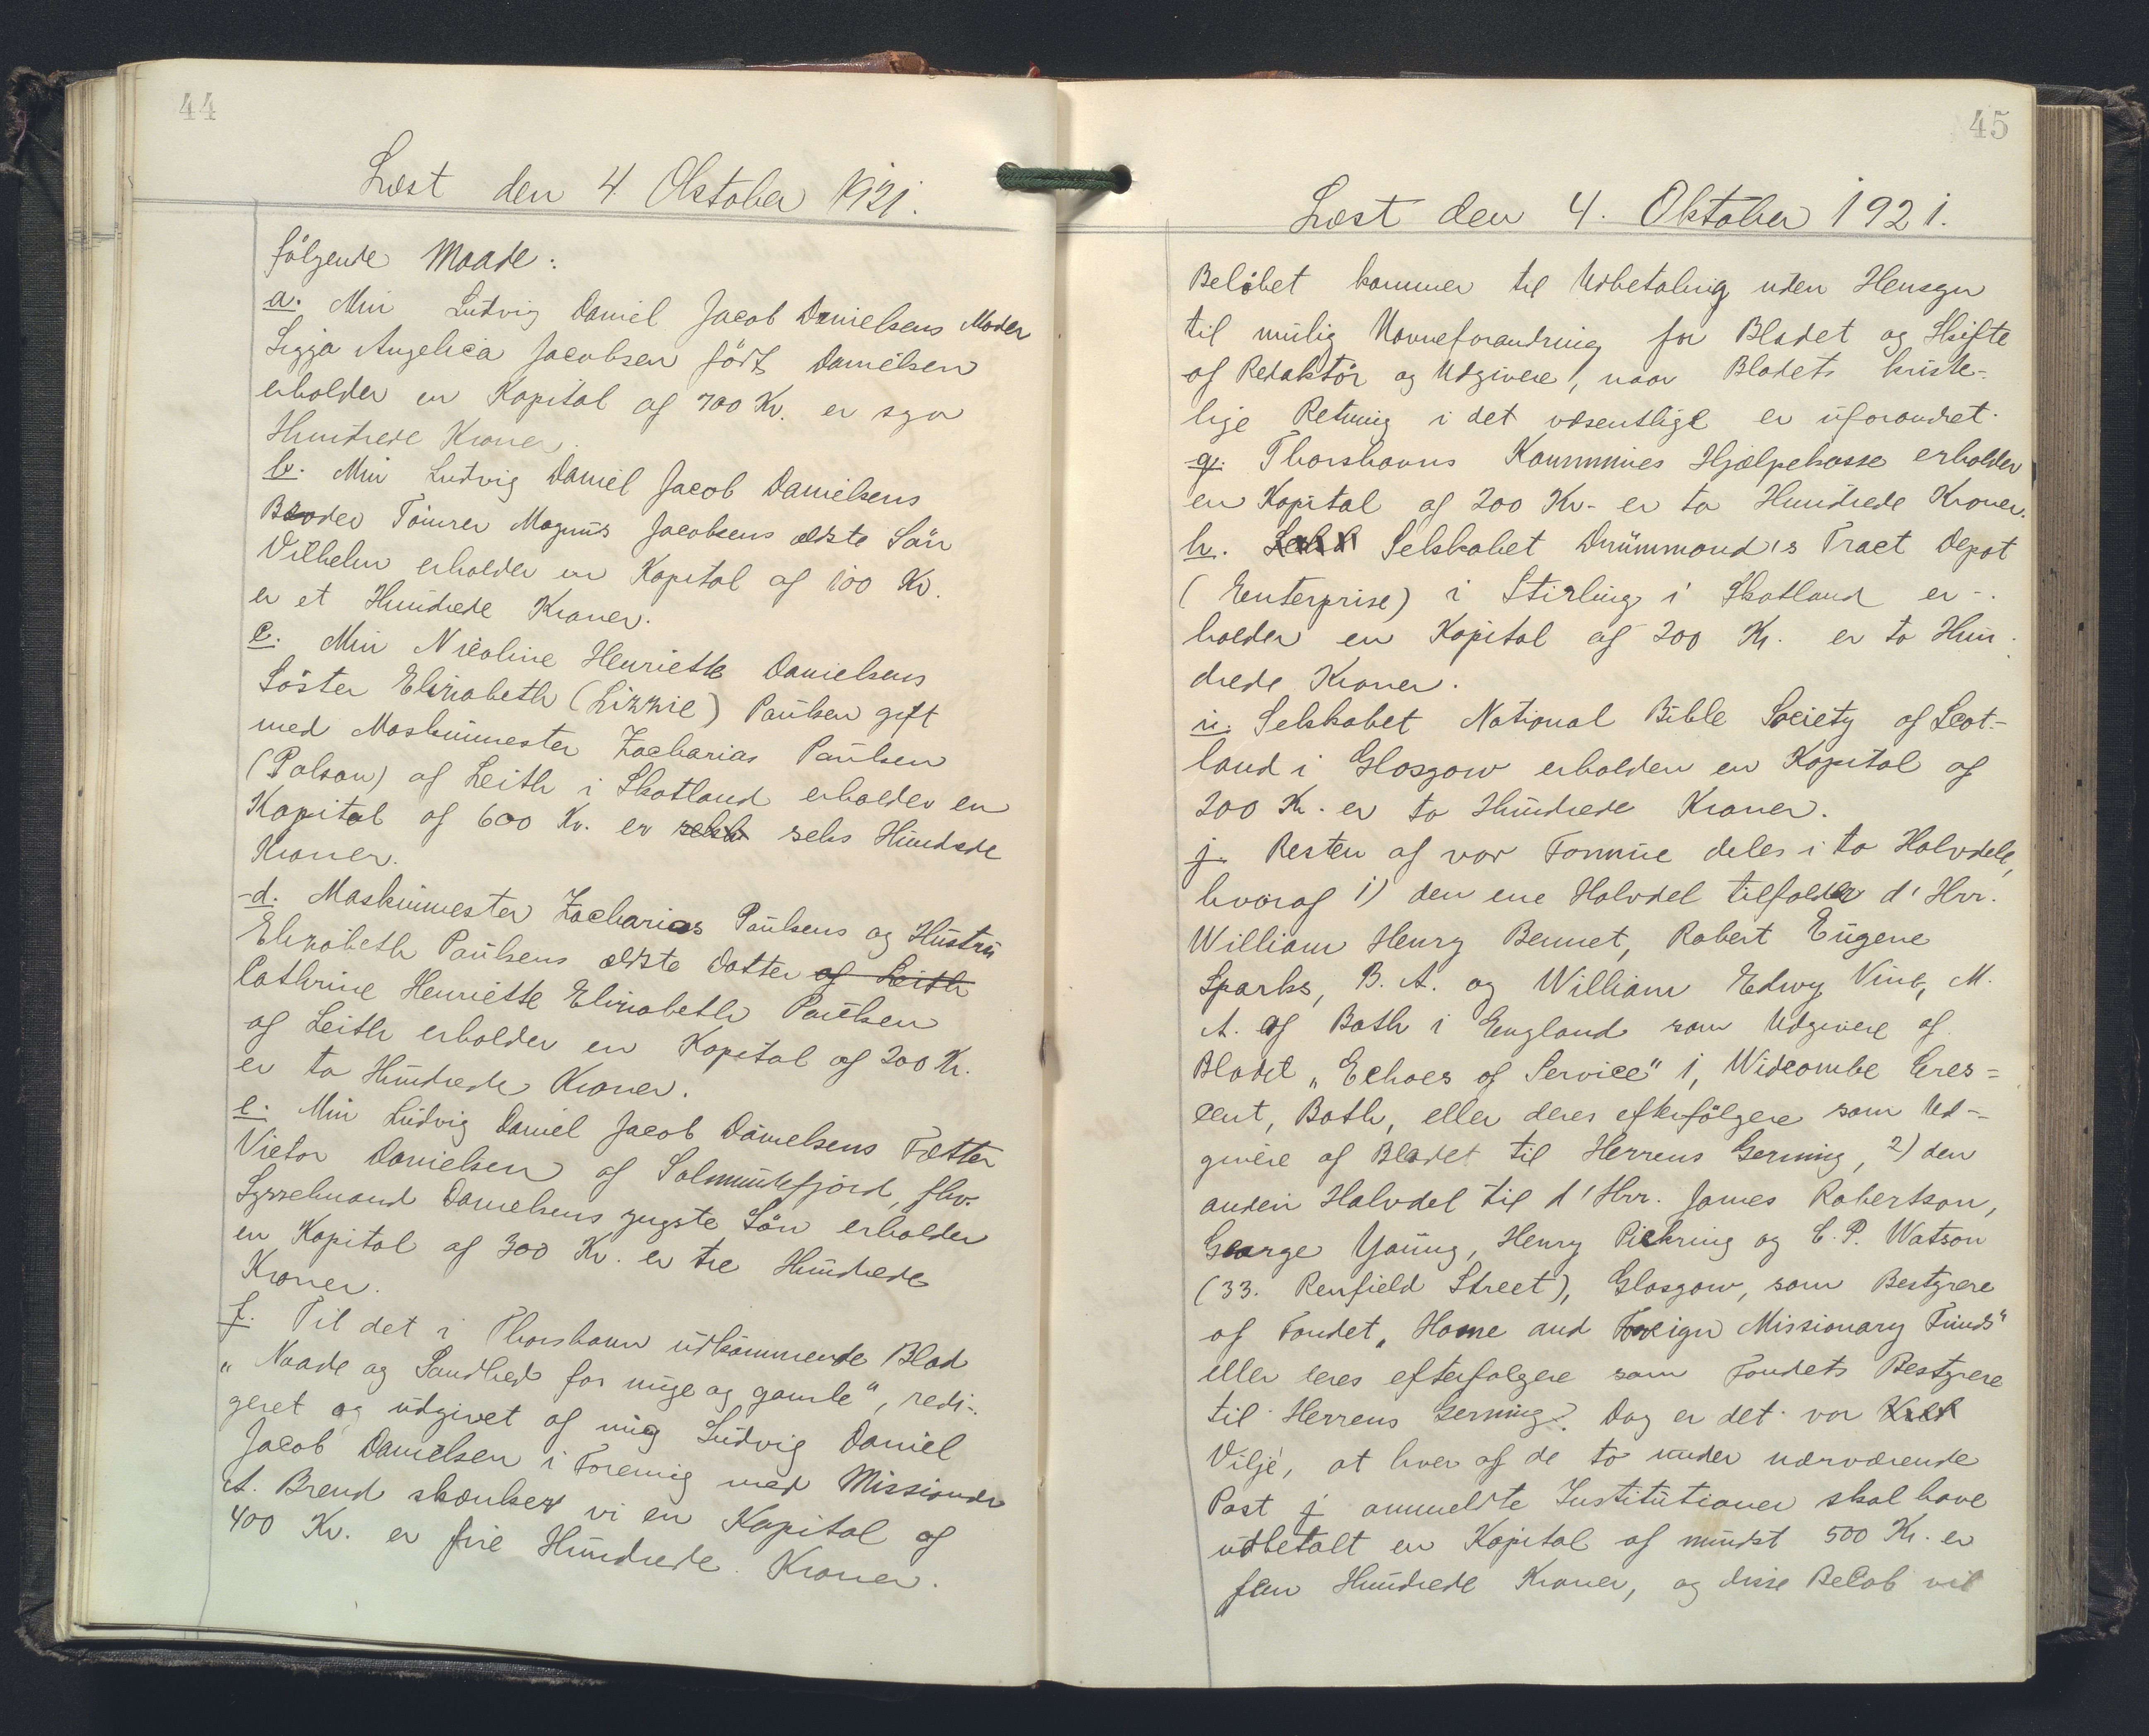 44
Læst den 4 Oktober 1921.
følgende Maade:
a. Min Ludvig Daniel Jacob Danielsens Moder
Sigga Angelica Jacobsen född Danielsen
erholder en Kapital af 700 Kr. er syv
Hundrede Kroner.
b. Min Ludvig Daniel Jacob Danielsens
Broder Tömrer Magnus Jacobsens ældste Sön
Vilhelm erholder en Kapital af 100 Kr.
er et Hundrede Kroner.
c. Min Nicoline Henriette Danielsens
Söster Elizabeth (Lizzie) Paulsen gift
med Maskinmester Zacharias Paulsen
(Polson) af Leith i Skotland erholder en
Kapital af 600 Kr. er seks Hundrede
Kroner.
d. Maskinmester Zacharias Paulsens og Hustru
Elizabeth Paulsens ældste Datter af Leith
Cathrine Henriette Elizabeth Paulsen
af Leith erholder en Kapital af 200 Kr.
er to Hundrede Kroner.
e. Min Ludvig Daniel Jacob Danielsens Fætter
Victor Danielsen af Solmundefjord, fhv.
Sysselmand Danielsens yngste Sön erholder
en Kapital af 300 Kr. er tre Hundrede
Kroner.
f. Til det i Thorshavn udkommende Blad
"Naade og Sandhed for unge og gamle", redi-
geret og udgivet af mig Ludvig Daniel
Jacob Danielsen i Forening med Missionær
A. Brend skænker vi en Kapital af
400 Kr. er fire Hundrede Kroner.
45
Læst den 4. Oktober 1921.
Belöbet kommer til Udbetaling uden Hensyn
til mulig Navneforandring for Bladet og Skifte
af Redaktör og Udgivere, naar Bladets kriste-
lige Retning i det væsentlige er uforandret.
g. Thorshavns Kommunes Hjælpekasse erholder
en Kapital af 200 Kr. er to Hundrede Kroner.
h. Selskabet Drummond's Tract Depot
(Enterprise) i Stirling i Skotland er-
holder en Kapital af 200 Kr. er to Hun-
drede Kroner.
i. Selskabet National Bible Society of Scot-
land i Glasgow erholder en Kapital af
200 Kr. er to Hundrede Kroner.
j. Resten af vor Formue deles i to Halvdele,
hvoraf 1) den ene Halvdel tilfalder d'Hrr.
William Henry Bennet, Robert Eugene
Sparks, B. A. og William Edwy Vine, M.
A. af Bath i England som Udgivere af
Bladet "Echoes of Service" 1, Widcombe Cres=
cent, Bath, eller deres efterfölgere som Ud-
givere af Bladet til Herrens Gerning, 2) den
anden Halvdel til d'Hrr. James Robertson,
George Young, Henry Pickring og C. P. Watson
(33. Renfield Street), Glasgow, som Bestyrere
af Fondet "Home and Foreign Missionary Funds"
eller deres efterfolgere som Fondets Bestyrere
til Herrens Gerning. Dog er det vor
Vilje, at hver af de to under nærværende
Post j anmeldte Institutioner skal have
udbetalt en Kapital af mindst 500 Kr. er
fem Hundrede Kroner, og disse Belob vil